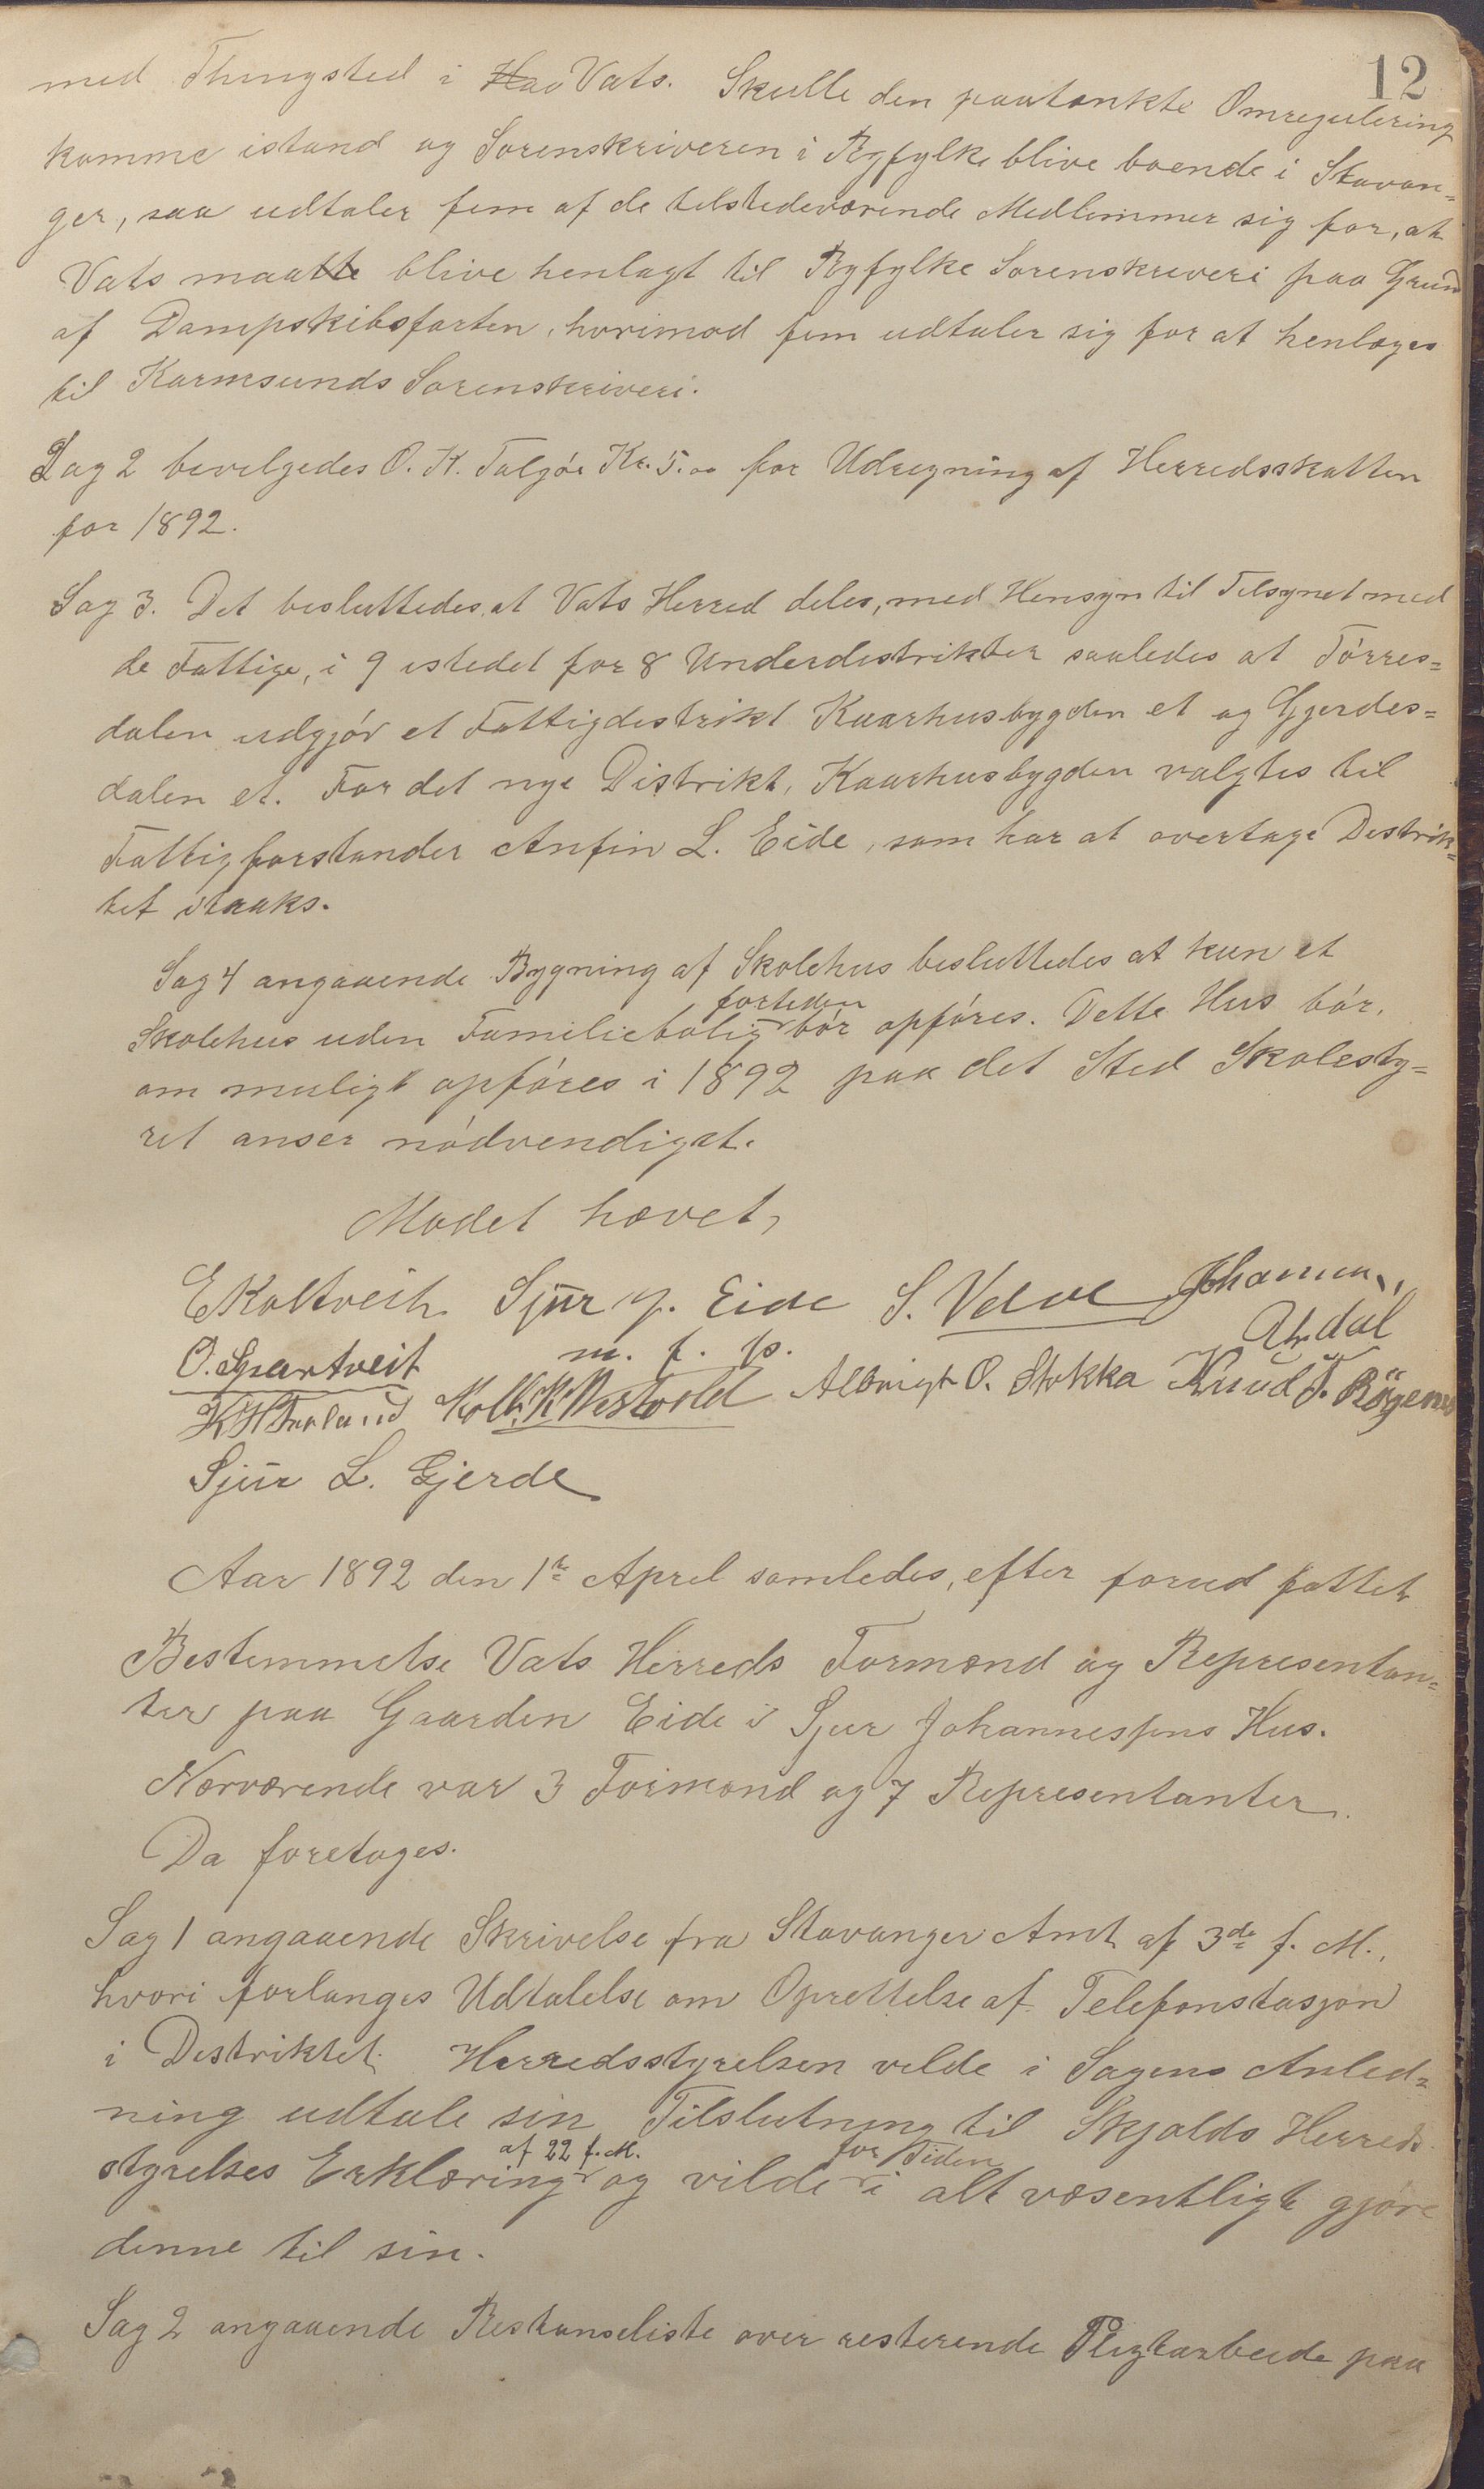 12
med Thingsted i Hao Vats. Skulle den paatænkte Omregulering
komme istand og Sorenskriveren i Ryfylke blive boende i Stavan=
ger, saa udtaler fem af de tilstedeværende Medlemmer sig for, at
Vats maatte blive henlagt til Ryfylke Sorenskriveri paa Grund
af Dampskibsfarten, hvorimod fem udtaler sig for at henlæges
til Karmsunds Sorenskriveri.
Sag 2 bevilgedes O. K. Talgør Kr. 5.00 for Udregning af Herredsskatten
for 1892.
Sag 3. Det besluttedes, at Vats Herred deles, med Hensyn til Tilsynet med
de Fattige, i 9 istedet for 8 Underdistrikter saaledes at Tørres=
dalen udgjør et Fattigdistrikt Kaarhusbygden et og Gjerdes=
dalen et. For det nye Distrikt, Kaarhusbygden valgtes til
Fattigforstander Anfin L. Eide, som har at overtage Distrik=
tet straks.
Sag 4 angaaende Bygning af Skolehus besluttedes at kun et
Skolehus uden Familiebolig fortiden bør opføres. Dette Hus bør,
om muligt opføres i 1892 paa det Sted Skolesty=
ret anser nødvendigst.
Mødet hævet,
E Koltveit Sjur J. Eide S. Velde Johannes
m. f. p. Opdal
O. Svartveit
K H Førland Kolb. K. Vestvold Albrigt O. Stokka Knud T. Røgenes
Sjur L. Gjerde
Aar 1892 den 1te April samledes, efter forud fattet
Bestemmelse Vats Herreds Formænd og Representan=
ter paa Gaarden Eide i Sjur Johannessens Hus.
Nærværende var 3 Formænd og 7 Representanter.
Da foretoges.
Sag 1 angaaende Skrivelse fra Stavanger Amt af 3de f. M.,
hvori forlanges Udtalelse om Oprettelse af Telefonstasjon
i Distriktet. Herredsstyrelsen vilde i Sagens Anled=
ning udtale sin Tilslutning til Skjolds Herreds
styrelses Erklæring af 22 f. M. og vilde for Tiden i alt væsentligt gjøre
denne til sin.
Sag 2 angaaende Restanseliste over resterende Pligtarbeide paa